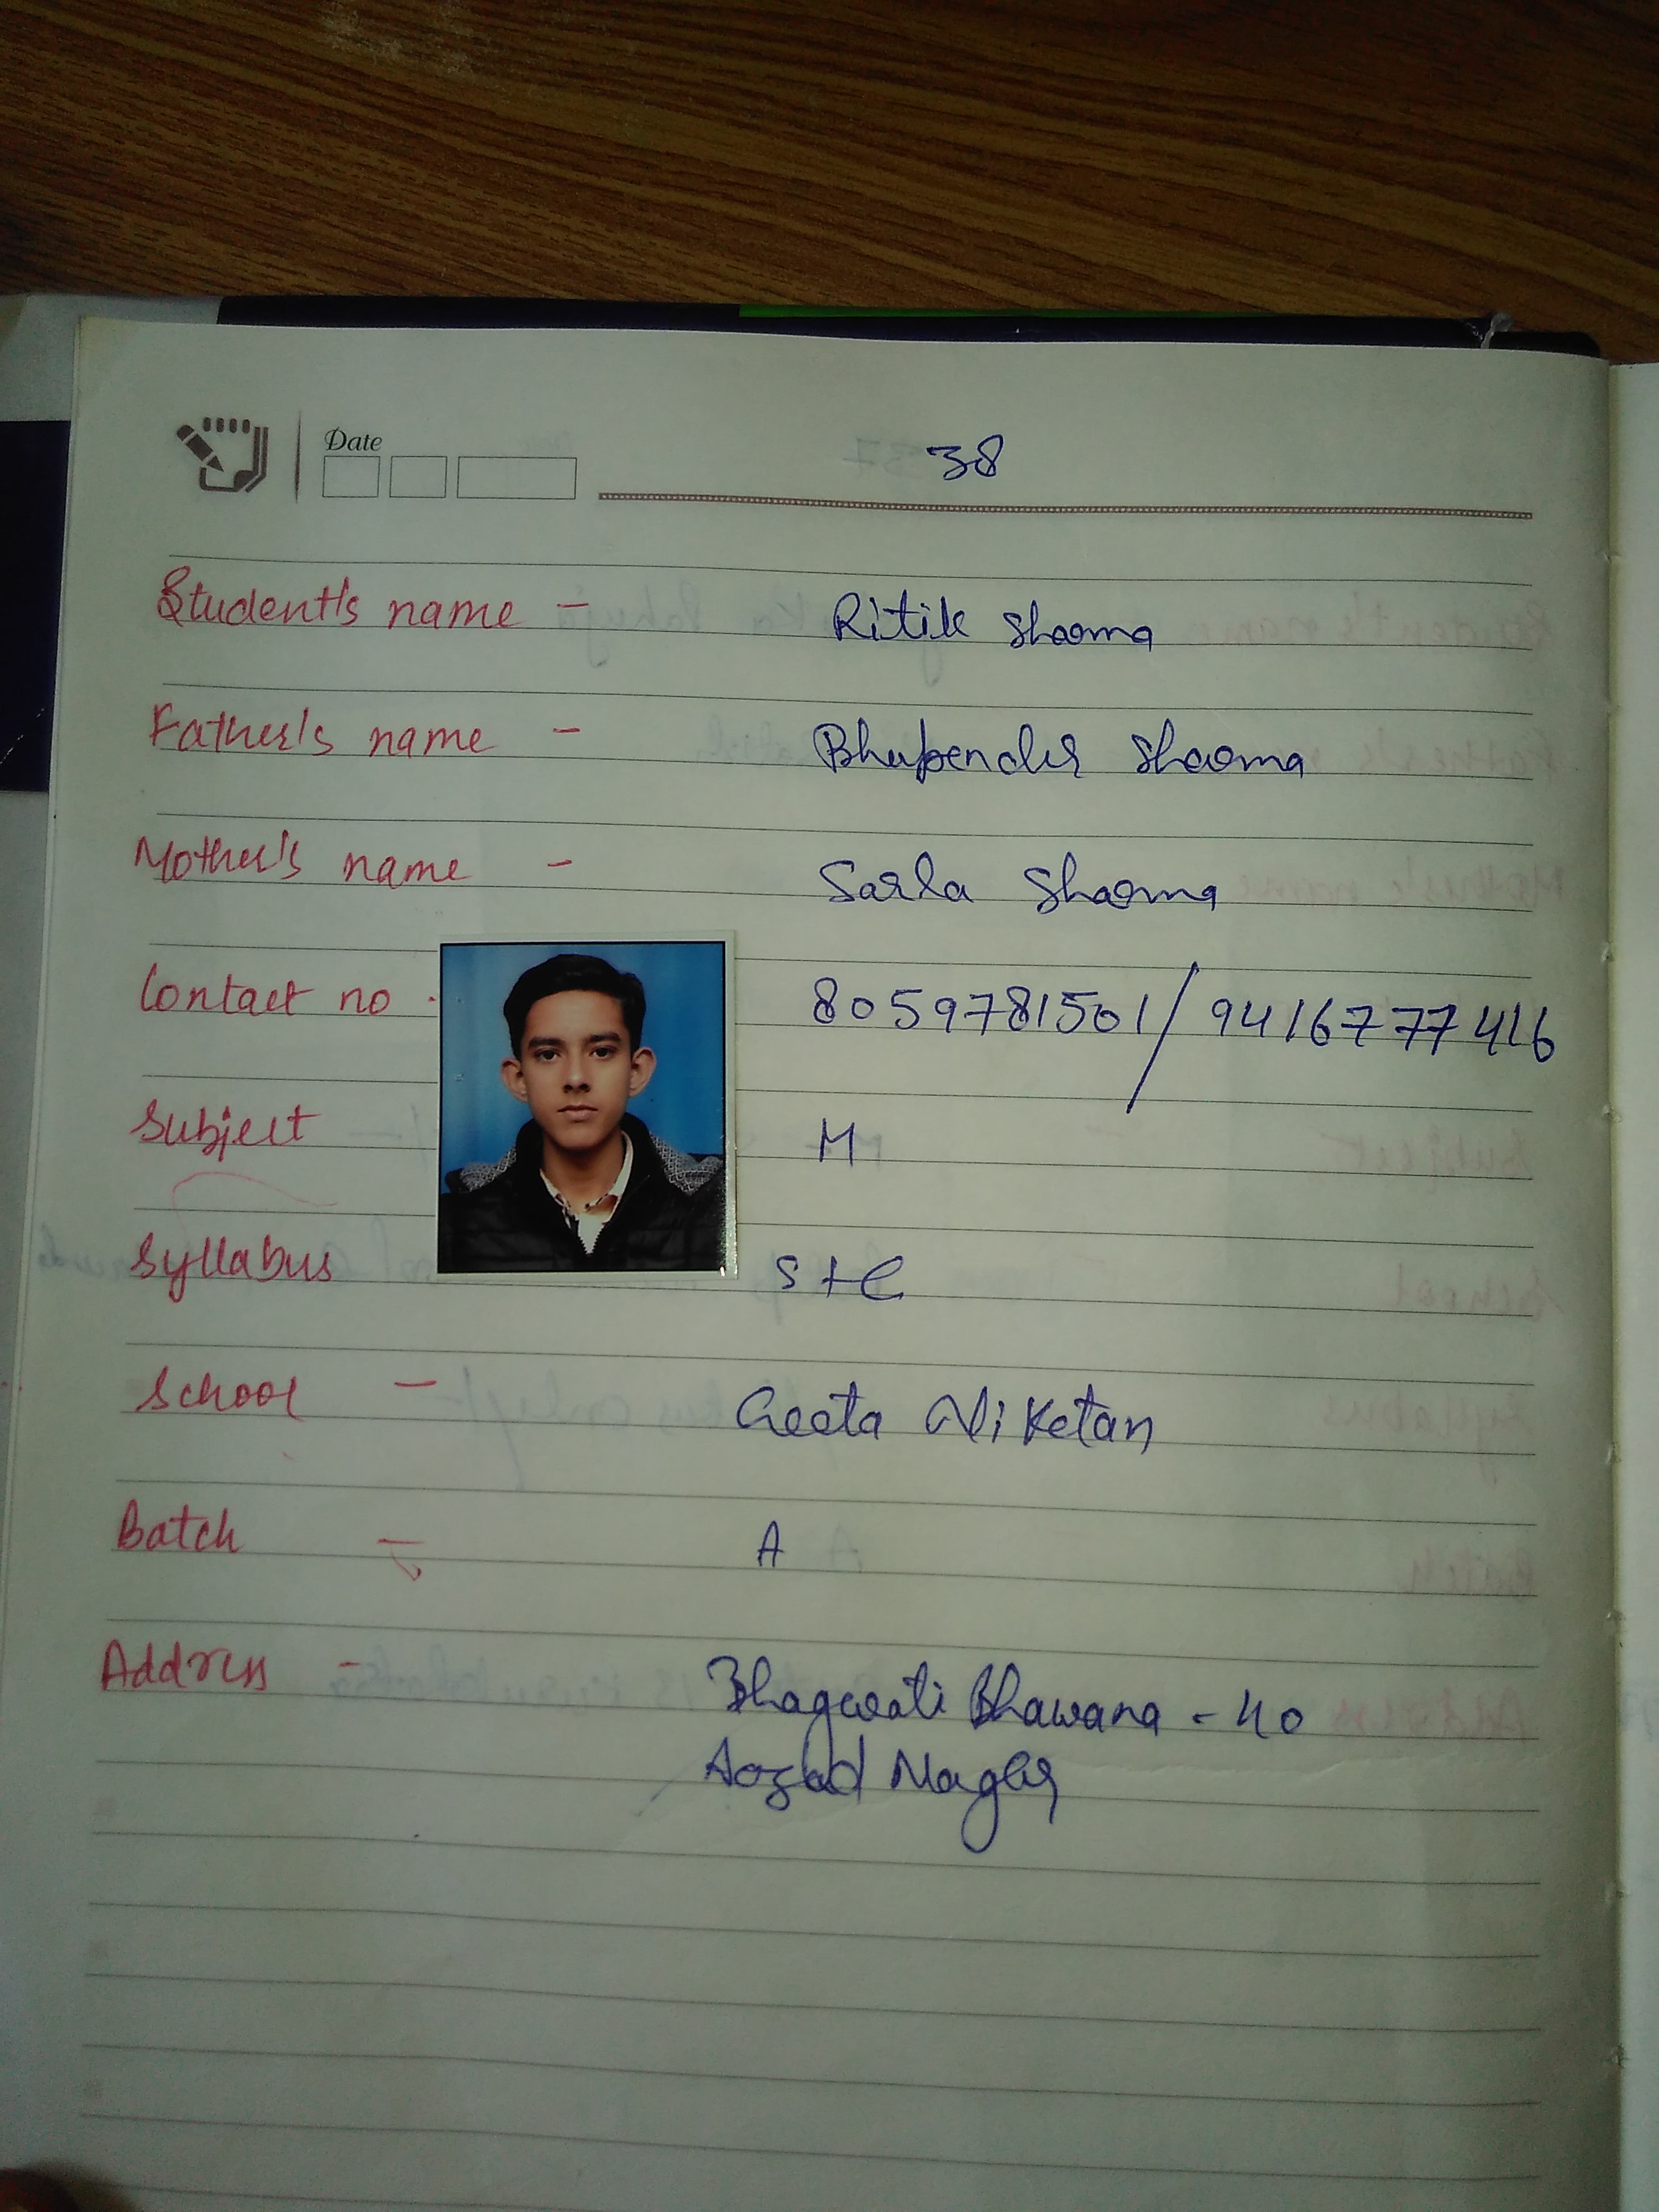 Date
38
Student's name - Ritik Sharma
Father's name - Bhupender Sharma
Mother's name - Sarla Sharma
Contact no. 8059781501/9416777416
Subject M
Syllabus S+C
School - Geeta Niketan
Batch - A
Address - Bhagwati Bhawana - 40
Aozad Nagar